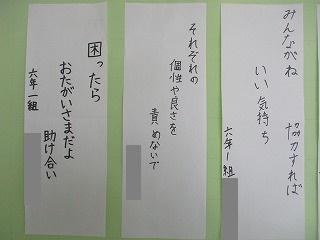 みんながね
協力すれば
いい気持ち
六年1組
それぞれの
個性や良さを
責めないで
困ったら
おたがいさまだよ
助け合い
六年一組